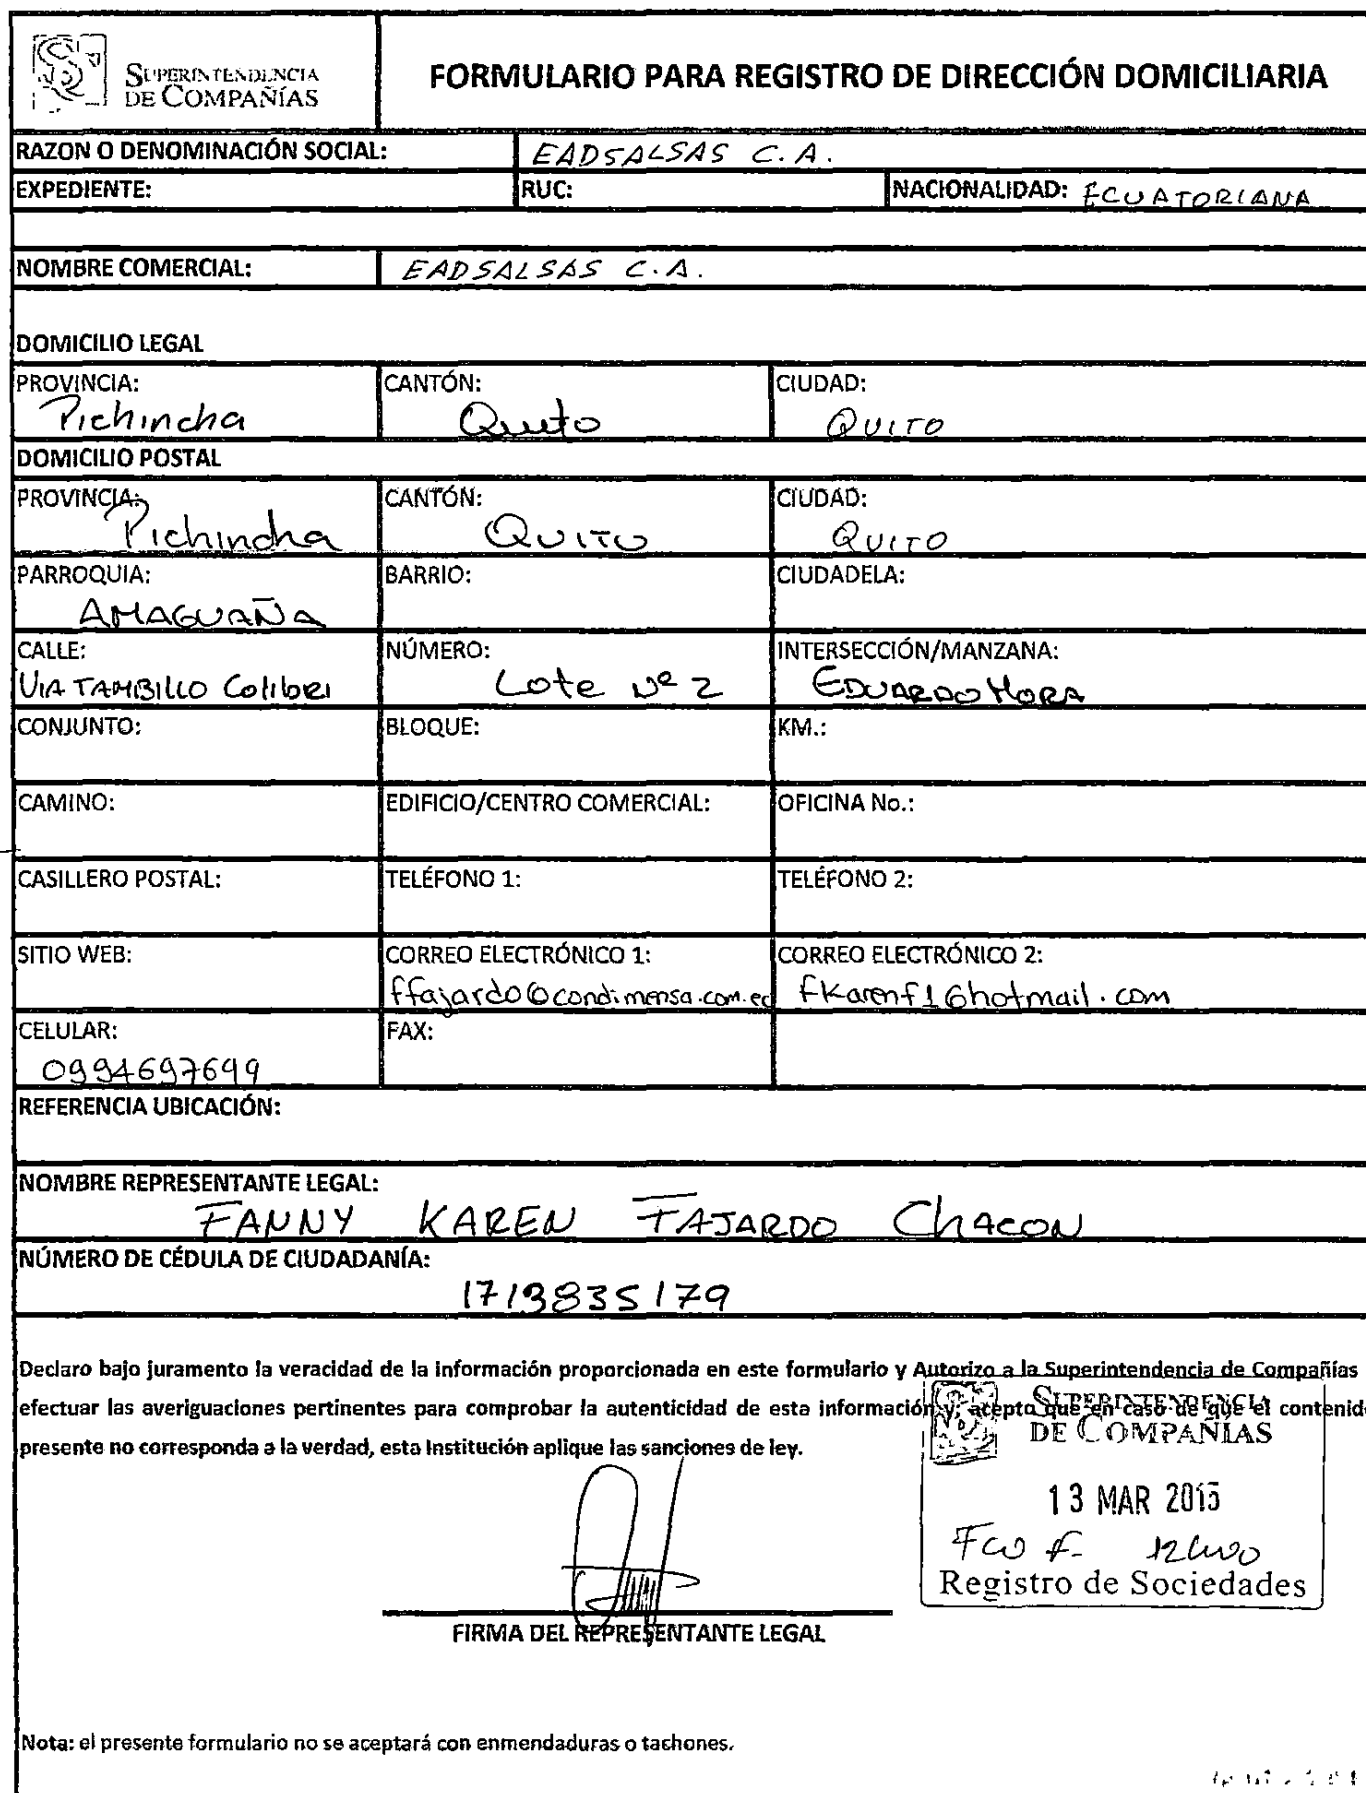 SUPERINTENDENCIA
DE COMPAÑÍAS
FORMULARIO PARA REGISTRO DE DIRECCIÓN DOMICILIARIA
RAZON O DENOMINACIÓN SOCIAL: EADSALSAS C.A.
EXPEDIENTE: RUC: NACIONALIDAD: ECUATORIANA
NOMBRE COMERCIAL: EADSALSAS C.A.
DOMICILIO LEGAL
PROVINCIA: CANTÓN: CIUDAD:
Pichincha Quito QUITO
DOMICILIO POSTAL
PROVINCIA: CANTÓN: CIUDAD:
Pichincha QUITO QUITO
PARROQUIA: BARRIO: CIUDADELA:
AMAGUAÑA
CALLE: NÚMERO: INTERSECCIÓN/MANZANA:
VIA TAMBILLO Colibri Lote Nº 2 EDUARDO MORA
CONJUNTO: BLOQUE: KM.:
CAMINO: EDIFICIO/CENTRO COMERCIAL: OFICINA No.:
CASILLERO POSTAL: TELÉFONO 1: TELÉFONO 2:
SITIO WEB: CORREO ELECTRÓNICO 1: CORREO ELECTRÓNICO 2:
ffajardo@condimensa.com.ec fkarenf1@hotmail.com
CELULAR: FAX:
0994697699
REFERENCIA UBICACIÓN:
NOMBRE REPRESENTANTE LEGAL:
FANNY KAREN FAJARDO CHACON
NÚMERO DE CÉDULA DE CIUDADANÍA:
1713835179
Declaro bajo juramento la veracidad de la información proporcionada en este formulario y Autorizo a la Superintendencia de Compañías
efectuar las averiguaciones pertinentes para comprobar la autenticidad de esta información y, acepto que en caso de que el contenido
presente no corresponda a la verdad, esta Institución aplique las sanciones de ley.
SUPERINTENDENCIA
DE COMPAÑÍAS
13 MAR 2015
Registro de Sociedades
FIRMA DEL REPRESENTANTE LEGAL
Nota: el presente formulario no se aceptará con enmendaduras o tachones.